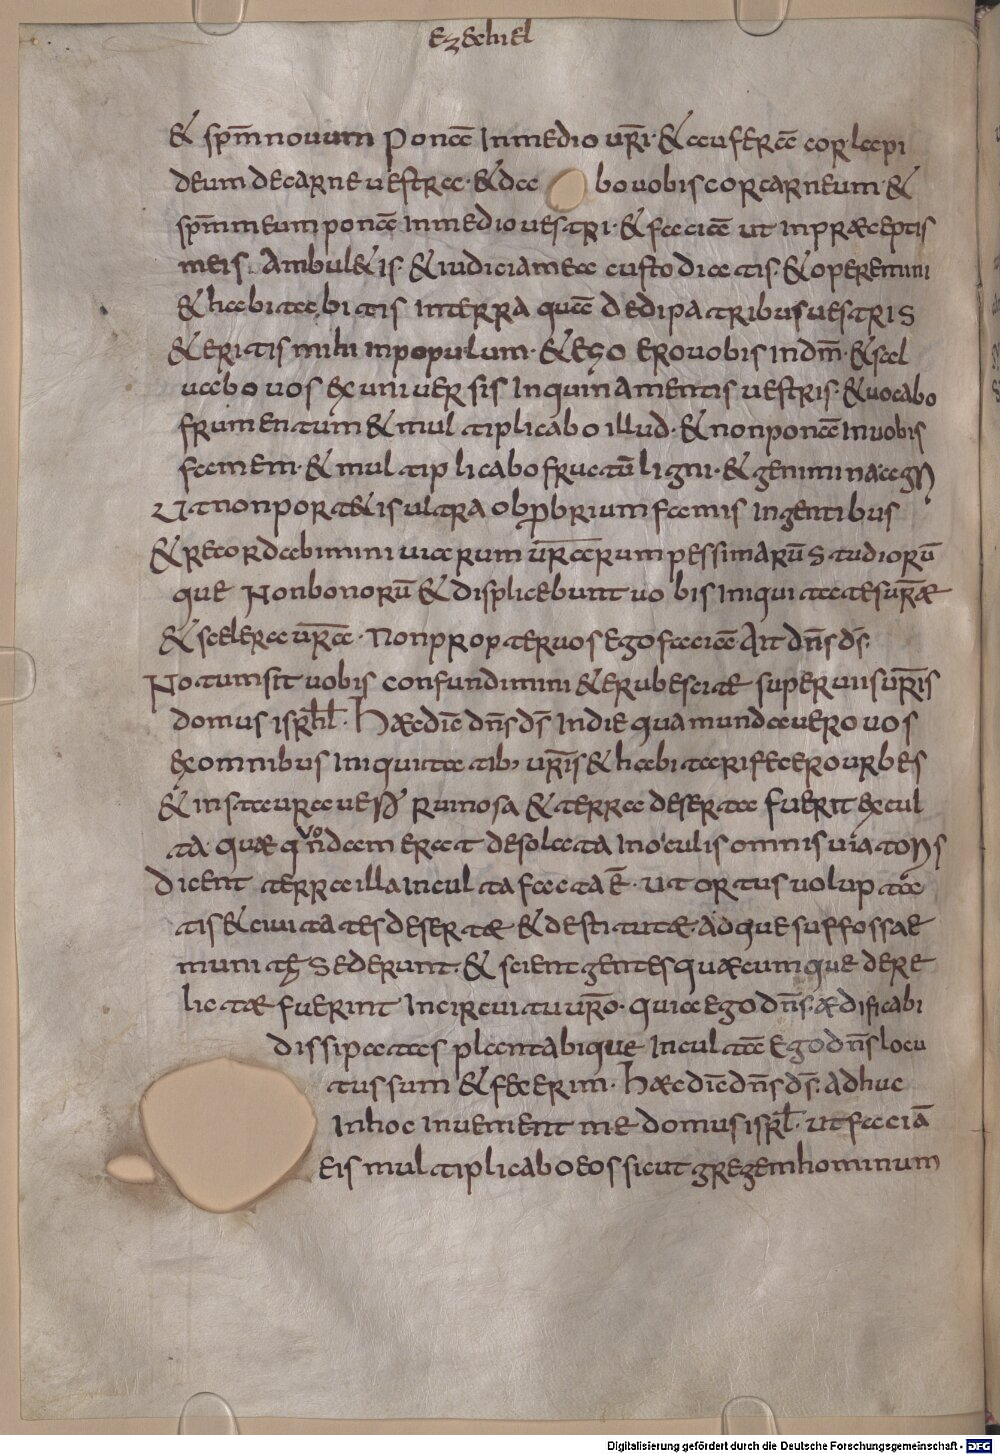 Ezechiel
& sp̄m novum ponā in medio ur̄i· & auferā cor lapi
deum de carne vestra· & da bo vobis cor carneum· &
sp̄m meum ponā in medio vestri· & faciā ut in præceptis
meis ambul&is· & iudicia mea custodiatis· & operemini
& habitabitis in terra quā dedi patribus vestris
& eritis mihi in populum· & ego ero vobis in dm̄· & sal
vabo vos ex universis inquinamentis vestris· & vocabo
frumentum & multiplicabo illud· & non ponā in vobis
famem· & multiplicabo fructū ligni· & genimina agri
Ut non port&is ultra obprbrium famis in gentibus
& recordabimini viarum ur̄arum pessimarū studiorū
que Non bonorū & displicebunt vobis iniquitates ur̄æ
& scelera ur̄a· Non propter vos ego faciā Ait dn̄s ds̄·
Notum sit vobis confundimini & erubescitæ super viis ur̄is
domus isrl̄· Hæc dic̄ dn̄s ds̄ In die qua mundavero vos
ex omnibus iniquitatib; ur̄is & habitari fecero urbes
& instauravero ruinosa & terra deserta fuerit excul
ta· quæ quondam erat desolata In oculis omnis viatoris
dicent terra illa inculta facta ē· ut ortus volupta
tis & civitates desertæ· & destitutæ· adque suffossae
munitę sederunt· & scient gentes quæcumque dere
lictæ fuerint In circuitu ur̄o· quia ego dn̄s ædificabi
dissipatas plantabique Incultā Ego dn̄s locu
tus sum & fecerim· Hæc dic̄ dn̄s ds̄· adhuc
In hoc invenient me domus isrl̄· ut faciā
eis multiplicabo eos sicut gregem hominum
Digitalisierung gefördert durch die Deutsche Forschungsgemeinschaft - DFG